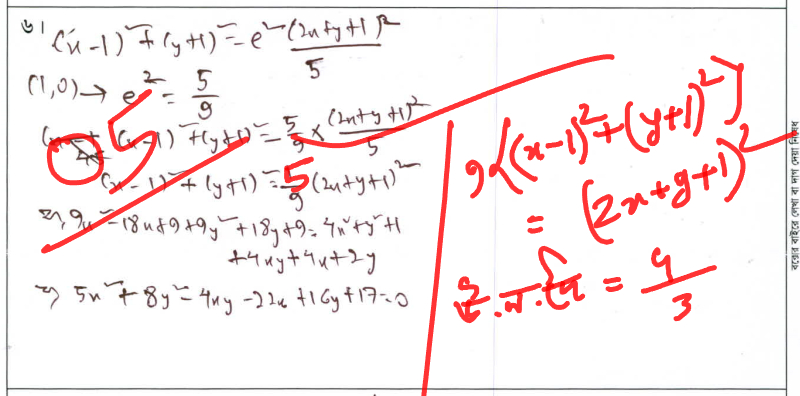 ৬।
(x-1)² + (y+1)² = e² (2x+y+1)²/5
(1,0) → e² = 5/9
(x-1)² + (y+1)² = 5/9 × (2x+y+1)²/5
(x-1)² + (y+1)² = 5/9 (2x+y+1)²
⇒ 9x² - 18x + 9 + 9y² + 18y + 9 = 4x² + y² + 1
+ 4xy + 4x + 2y
⇒ 5x² + 8y² - 4xy - 22x + 16y + 17 = 0
5
9{(x-1)² + (y+1)²}
= (2x+y+1)²
= 4/3
বক্সের বাইরে লেখা বা দাগ দেয়া নিষেধ